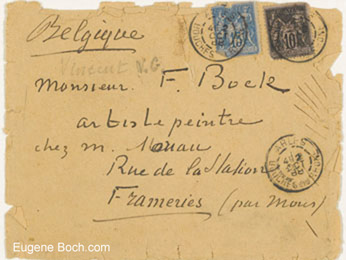 Belgique
Vincent V.G.
Monsieur F. Bock
artiste peintre
chez m.
Rue de la Station
Frameries (par Mons)
15
10
ARLES
Eugene Boch.com